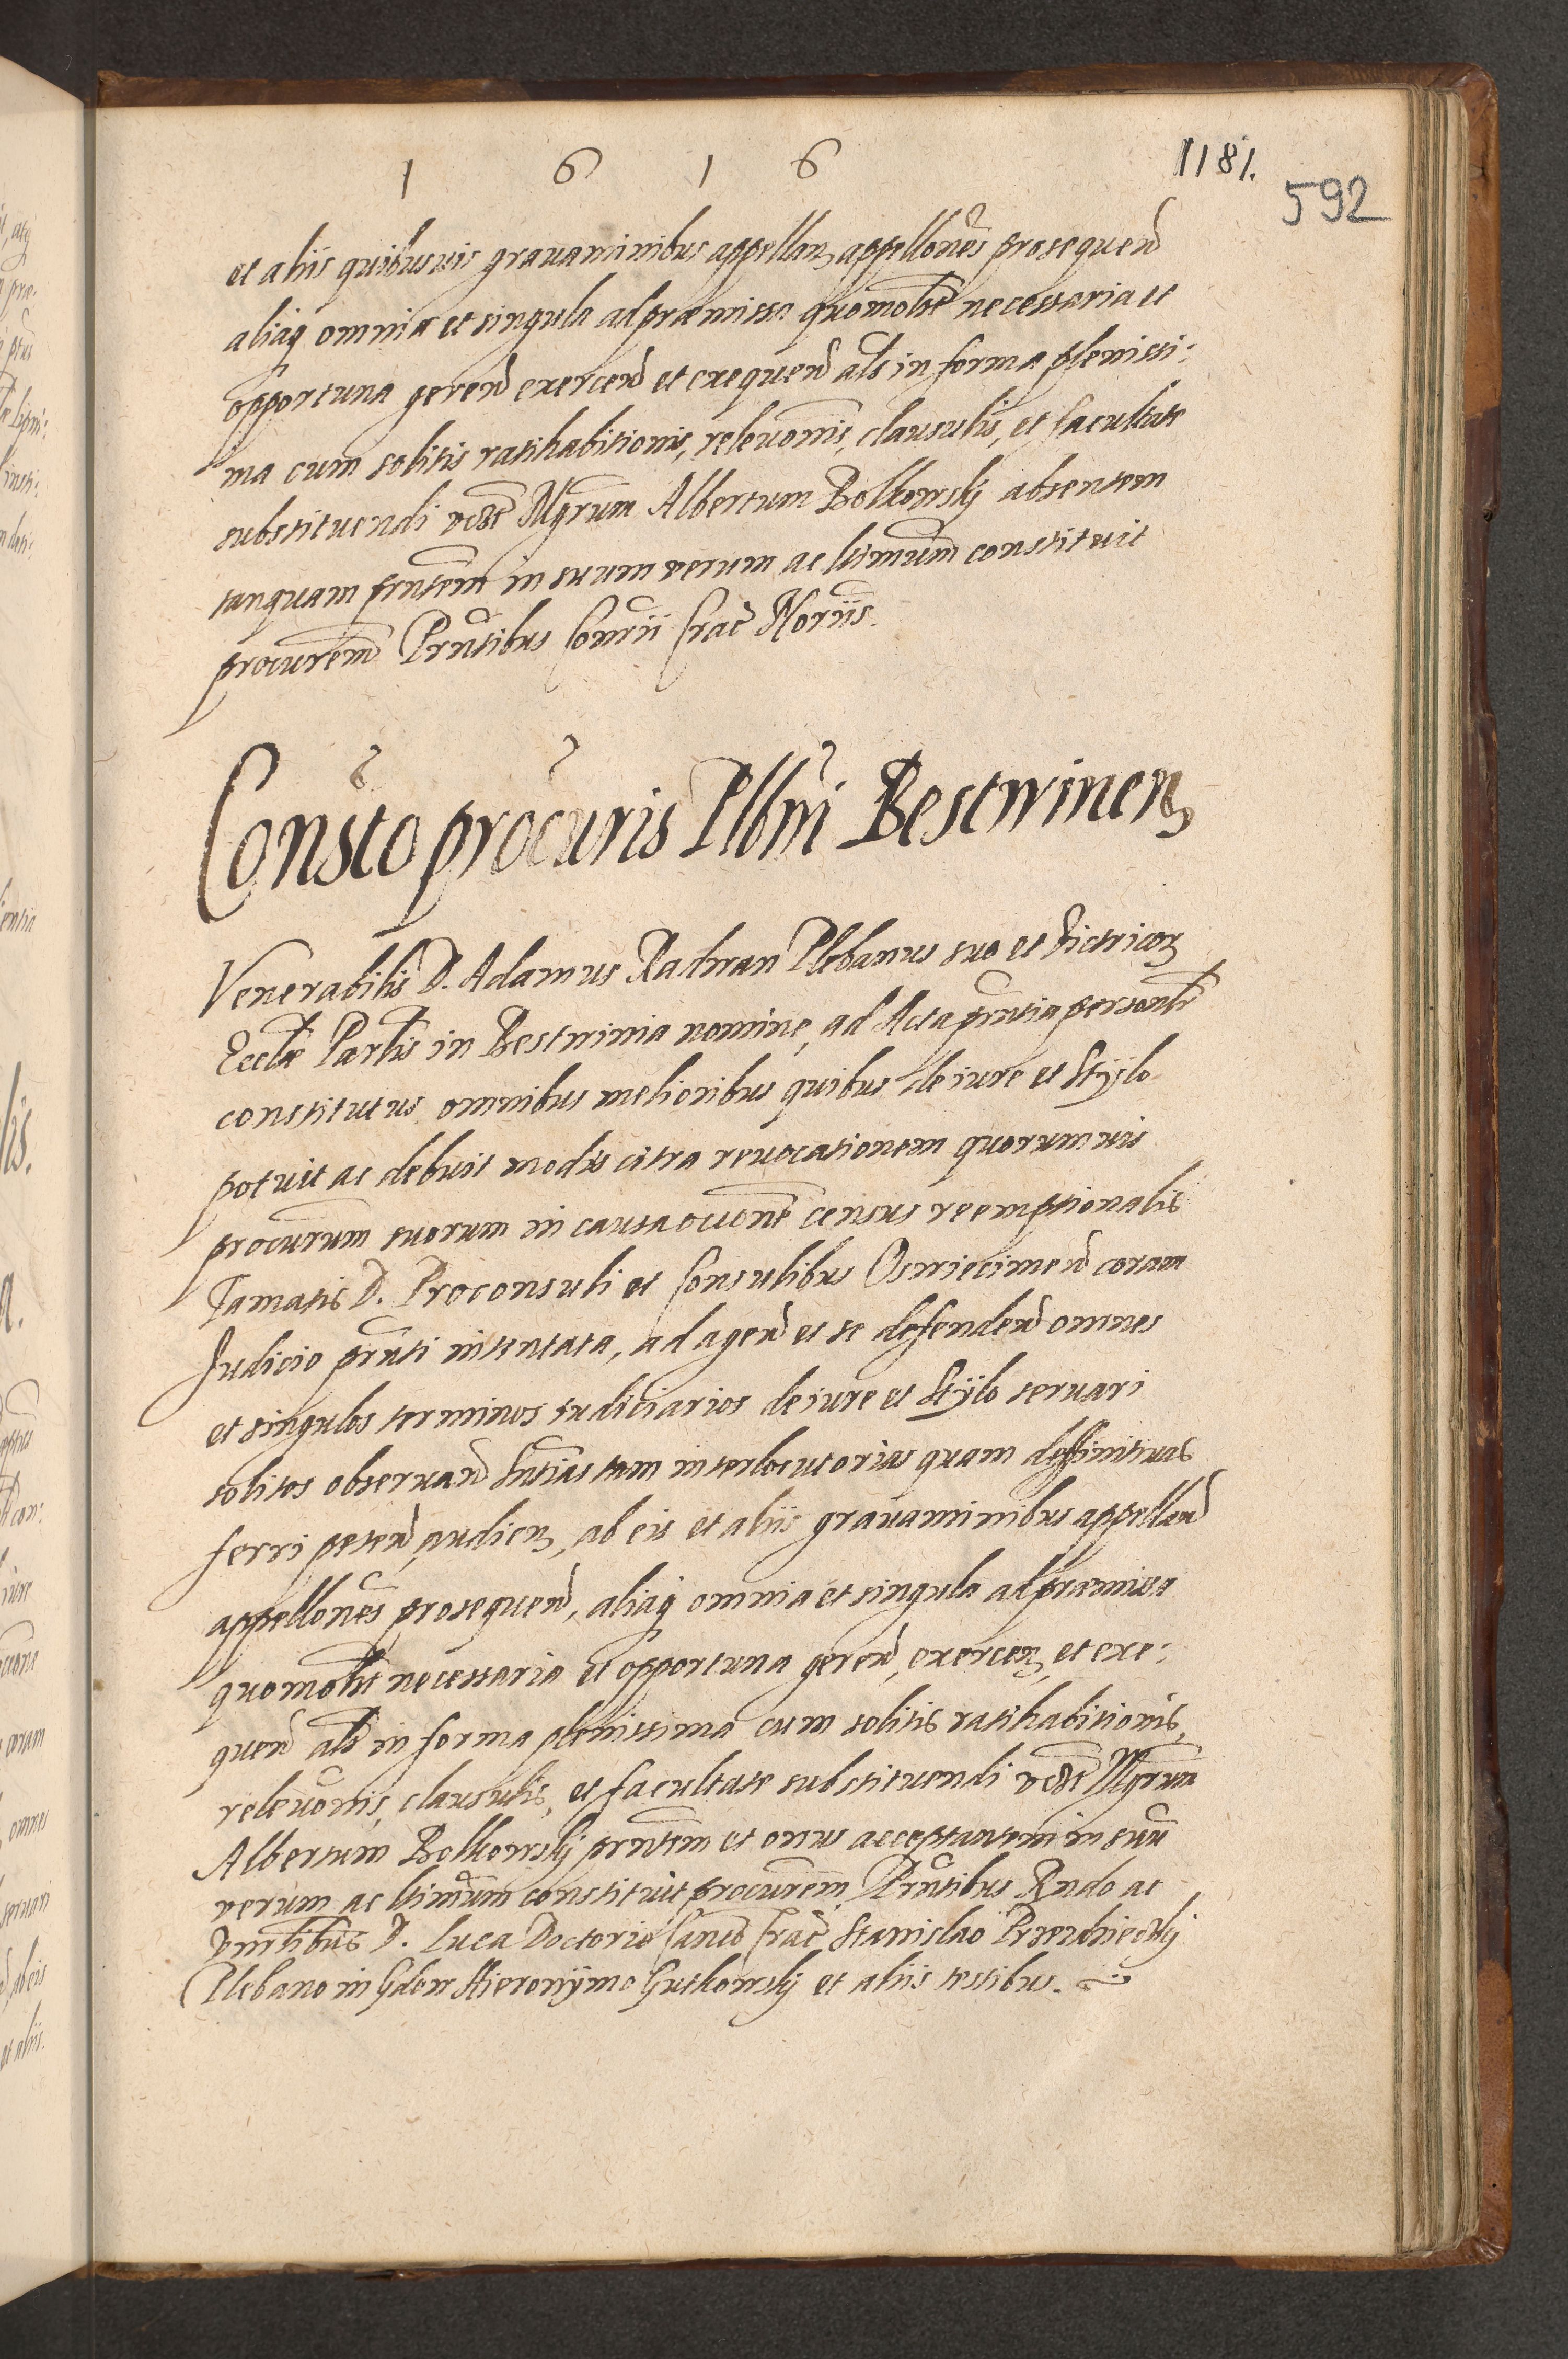 1 6 1 6
1181.
592
et aliis quibusuis grauaminibus appellan, appellones prosequend
aliaq omnia et singula ad præmissa quomolbt necessaria et
opportuna gerend exercend et exequend als in forma plenissi:
ma cum solitis ratihabitionis, releuonis, clausulis, et facultate
substituendi vdlt Mgrum Albertum Bolkowskij absentem
tanquam pntem in suum verum ac ltimum constituit
procurem Pntibus Consrii Crac Noriis.
Consto procuris Plbni Bestwinen
Venerabilis D. Adamus Radwan Plebanus suo et victricor
Eccliæ Parlis in Bestwinia nomine, ad Acta pntia personlr
constitutus, omnibus melioribus quibus de iure et Stÿlo
potuit ac debuit modis citra reuocationem quorumuis
procurum suorum in causa occone census reemptionalis
Famatis D. Proconsuli et Consulibus Oswiecimen coram
Judicio pnti intentata, ad agend et se defendend omnes
et singulos terminos iudiciarios de iure et Stÿlo seruari
solitos obseruand Sntias tam interlocutorias quam deffinitiuas
ferri petend, audien, ab eis et aliis grauaminibus appelland
appellones prosequend, aliaq omnia et singula ad præmissa
quomolbt necessaria et opportuna gerend, exercen, et exe:
quend als in forma plenissima cum solitis ratihabitionis,
releuonis, clausulis, et facultate substituendi vdlt Mgrum
Albertum Bolkowskij pntem et onus acceptantem in suu
verum ac ltimum constituit procurem, Pntibus Rndo ac
Dnilibus D. Luca Doctorio Canco Crac Stanislao
Plebano in Gdow Hieronÿmo Gutkowskij et aliis testibus.